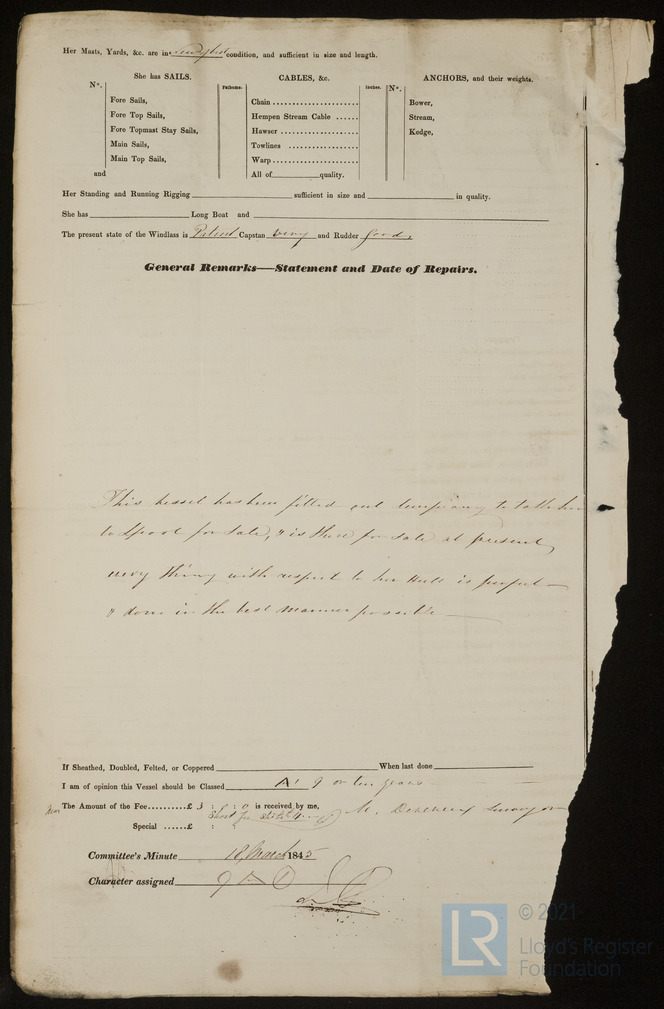 Her Masts, Yards, &c. are in condition, and sufficient in size and length.
She has SAILS.
CABLES, &c.
ANCHORS, and their weights.
N°.
Fathoms.
Inches.
N°.
Fore Sails,
Fore Top Sails,
Fore Topmast Stay Sails,
Main Sails,
Main Top Sails,
and
Chain
Hempen Stream Cable
Hawser
Towlines
Warp
All of quality.
Bower,
Stream,
Kedge,
Her Standing and Running Rigging sufficient in size and in quality.
She has Long Boat and
The present state of the Windlass is Patent Capstan and Rudder good.
General Remarks—Statement and Date of Repairs.
This vessel has been fitted out to take her
to Lpool for sale, & is there for sale at present,
every thing with respect to her Hull is perfect
& done in the best manner possible
If Sheathed, Doubled, Felted, or Coppered When last done
I am of opinion this Vessel should be Classed A1 9 or ten years
The Amount of the Fee..........£ 3 : 0 : 0 is received by me,
Special ......£ : :
Committee's Minute 18 March 1845
Character assigned 9 A 1
© 2021
LR
Lloyd's Register
Foundation